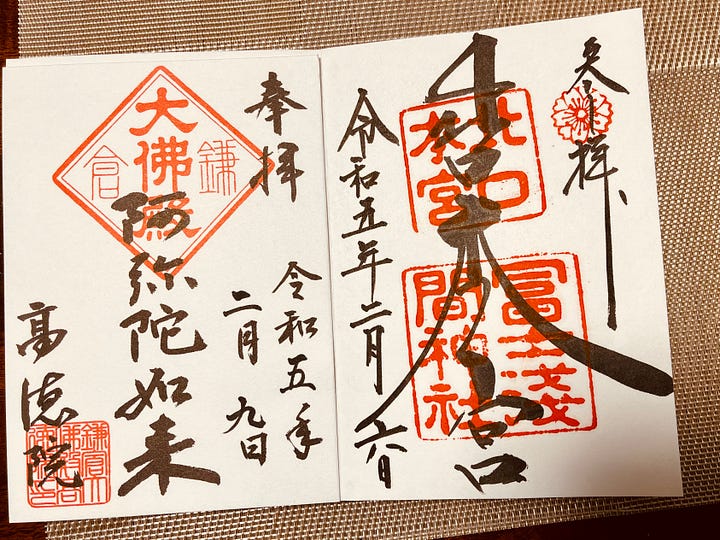 奉拝
北口
本宮
北口本宮
冨士浅
間神社
令和五年二月六日
奉拝
令和五年
二月九日
大佛殿
鎌倉
阿弥陀如来
高徳院